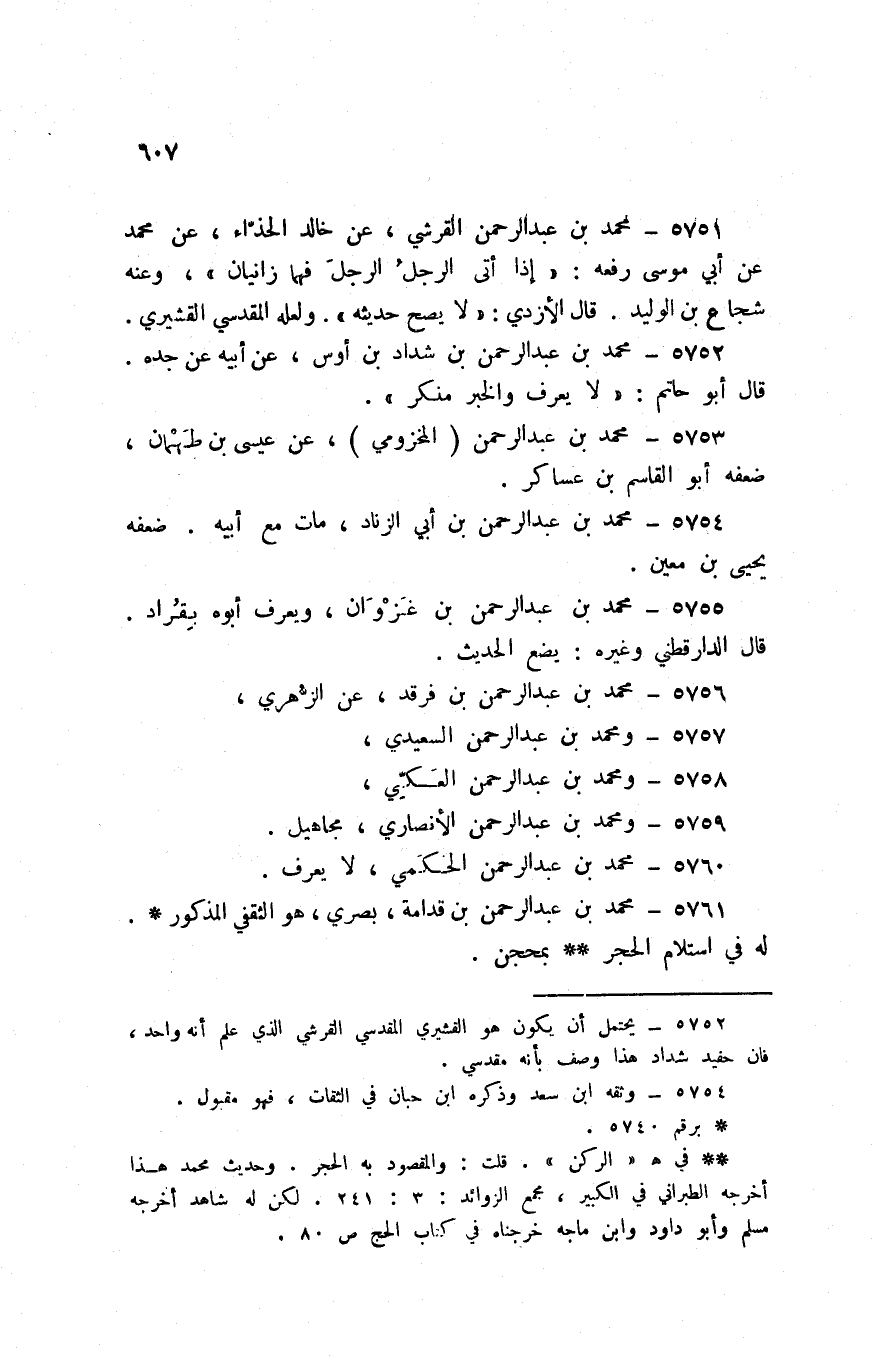 ٦٠٧
٥٧٥١ – محمد بن عبدالرحمن القرشي ، عن خالد الحذّاء ، عن محمد
عن أبي موسى رفعه : « إذا أتى الرجلُ الرجلَ فهما زانيان » ، وعنه
شجاع بن الوليد . قال الأزدي : « لا يصح حديثه » . ولعله المقدسي القشيري .
٥٧٥٢ – محمد بن عبدالرحمن بن شداد بن أوس ، عن أبيه عن جده .
قال أبو حاتم : « لا يعرف والخبر منكر » .
٥٧٥٣ – محمد بن عبدالرحمن ( المخزومي ) ، عن عيسى بن طَهْمان ،
ضعفه أبو القاسم بن عساكر .
٥٧٥٤ – محمد بن عبدالرحمن بن أبي الزناد ، مات مع أبيه . ضعفه
يحيى بن معين .
٥٧٥٥ – محمد بن عبدالرحمن بن غَزْوَان ، ويعرف أبوه بِقُراد .
قال الدارقطني وغيره : يضع الحديث .
٥٧٥٦ – محمد بن عبدالرحمن بن فرقد ، عن الزُّهري ،
٥٧٥٧ – ومحمد بن عبدالرحمن السعيدي ،
٥٧٥٨ – ومحمد بن عبدالرحمن العَكّي ،
٥٧٥٩ – ومحمد بن عبدالرحمن الأنصاري ، مجاهيل .
٥٧٦٠ – محمد بن عبدالرحمن الحَكَمي ، لا يعرف .
٥٧٦١ – محمد بن عبدالرحمن بن قدامة ، بصري ، هو الثقفي المذكور * .
له في استلام الحجر ** بمحجن .
٥٧٥٢ – يحتمل أن يكون هو القشيري المقدسي القرشي الذي علم أنه واحد ،
فان حفيد شداد هذا وصف بأنه مقدسي .
٥٧٥٤ – وثقه ابن سعد وذكره ابن حبان في الثقات ، فهو مقبول .
* برقم ٥٧٤٠ .
** في ه « الركن » . قلت : والمقصود به الحجر . وحديث محمد هذا
أخرجه الطبراني في الكبير ، مجمع الزوائد : ٣ : ٢٤١ . لكن له شاهد أخرجه
مسلم وأبو داود وابن ماجه خرجناه في كتاب الحج ص ٨٠ .